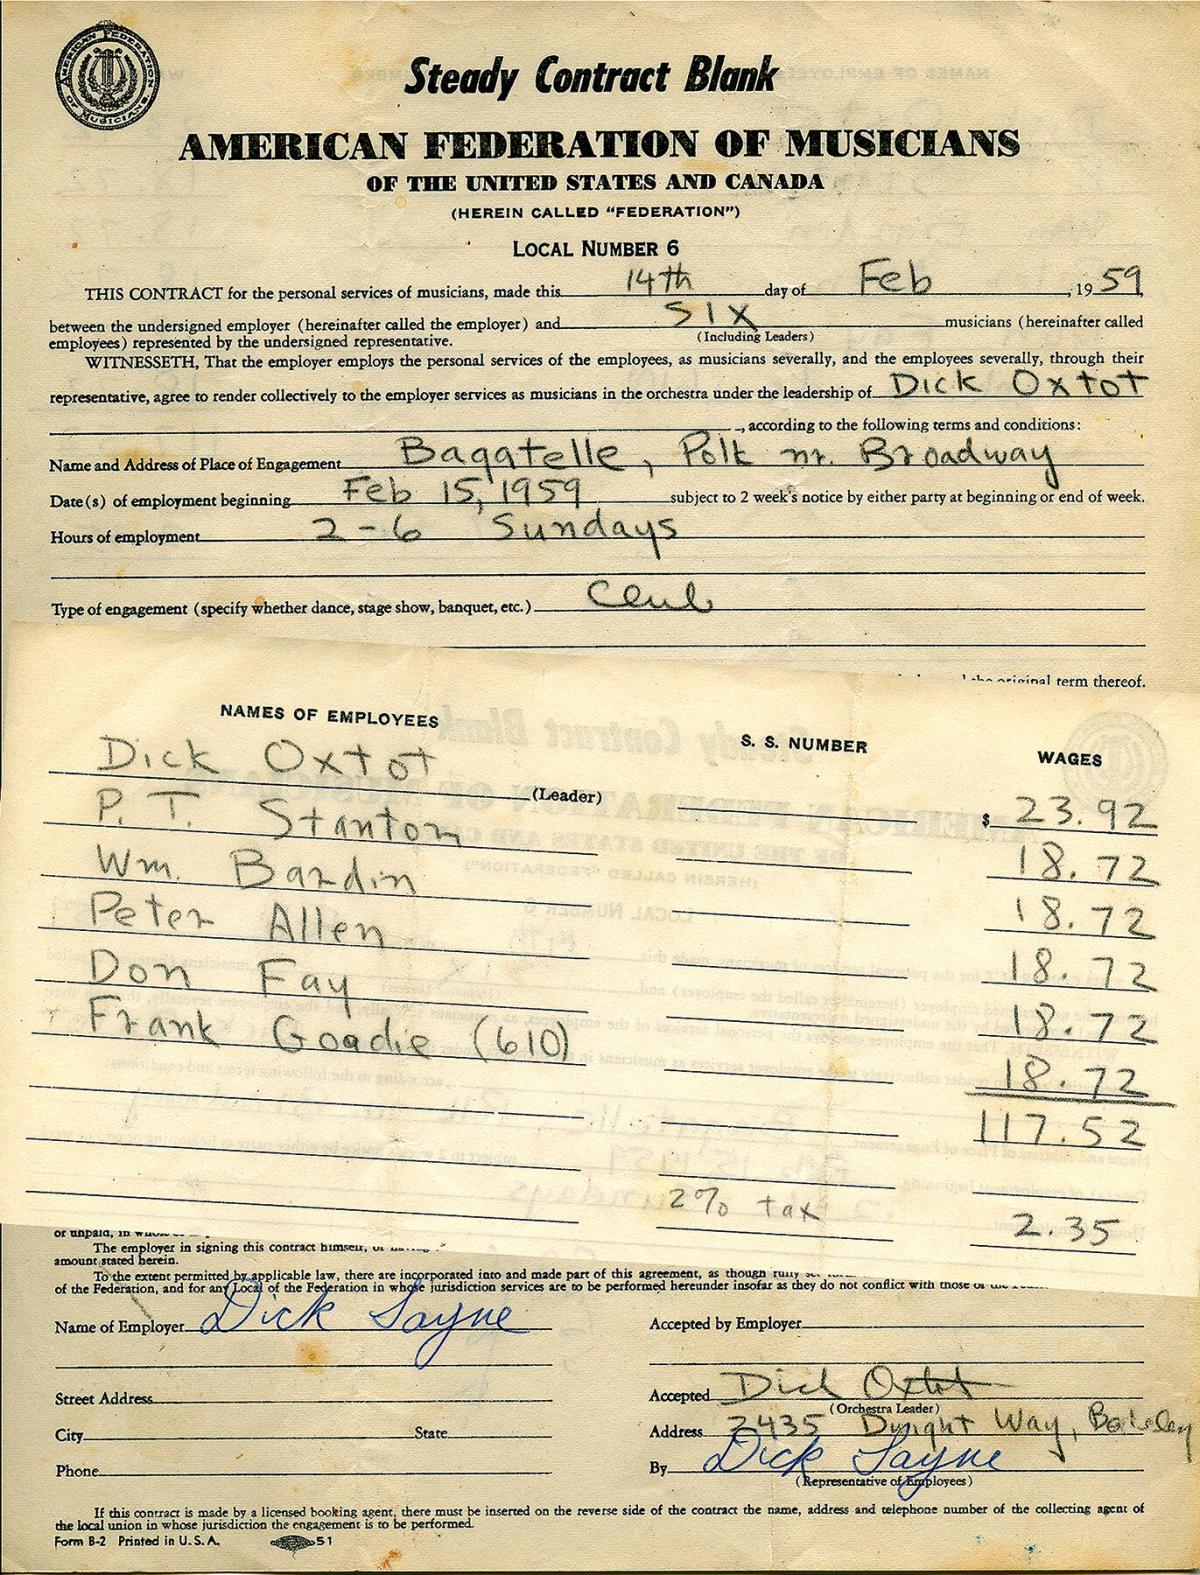 AMERICAN FEDERATION OF MUSICIANS
Steady Contract Blank
AMERICAN FEDERATION OF MUSICIANS
OF THE UNITED STATES AND CANADA
(HEREIN CALLED "FEDERATION")
LOCAL NUMBER 6
THIS CONTRACT for the personal services of musicians, made this 14th day of Feb, 1959
between the undersigned employer (hereinafter called the employer) and SIX musicians (hereinafter called
(Including Leaders)
employees) represented by the undersigned representative.
WITNESSETH, That the employer employs the personal services of the employees, as musicians severally, and the employees severally, through their
representative, agree to render collectively to the employer services as musicians in the orchestra under the leadership of Dick Oxtot
, according to the following terms and conditions:
Name and Address of Place of Engagement Bagatelle, Polk nr. Broadway
Date(s) of employment beginning Feb 15, 1959 subject to 2 week's notice by either party at beginning or end of week.
Hours of employment 2-6 Sundays
Type of engagement (specify whether dance, stage show, banquet, etc.) Club
the original term thereof.
NAMES OF EMPLOYEES S. S. NUMBER WAGES
Dick Oxtot (Leader) $ 23.92
P. T. Stanton 18.72
Wm. Bardin 18.72
Peter Allen 18.72
Don Fay 18.72
Frank Goadie (610) 18.72
117.52
2% tax 2.35
or unpaid, in
The employer in signing this contract himself,
amount stated herein.
To the extent permitted by applicable law, there are incorporated into and made part of this agreement, as though fully
of the Federation, and for any Local of the Federation in whose jurisdiction services are to be performed hereunder insofar as they do not conflict with those of
Name of Employer Dick Sayne Accepted by Employer
Street Address Accepted Dick Oxtot
(Orchestra Leader)
City State Address 2435 Dwight Way, Berkeley
Phone By Dick Sayne
(Representative of Employees)
If this contract is made by a licensed booking agent, there must be inserted on the reverse side of the contract the name, address and telephone number of the collecting agent of
the local union in whose jurisdiction the engagement is to be performed.
Form B-2 Printed in U. S. A. 51